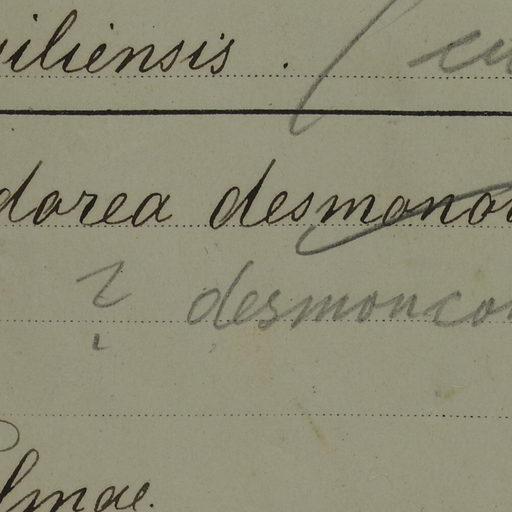 iliensis .
dorea desmonor
? desmoncor
lmae.